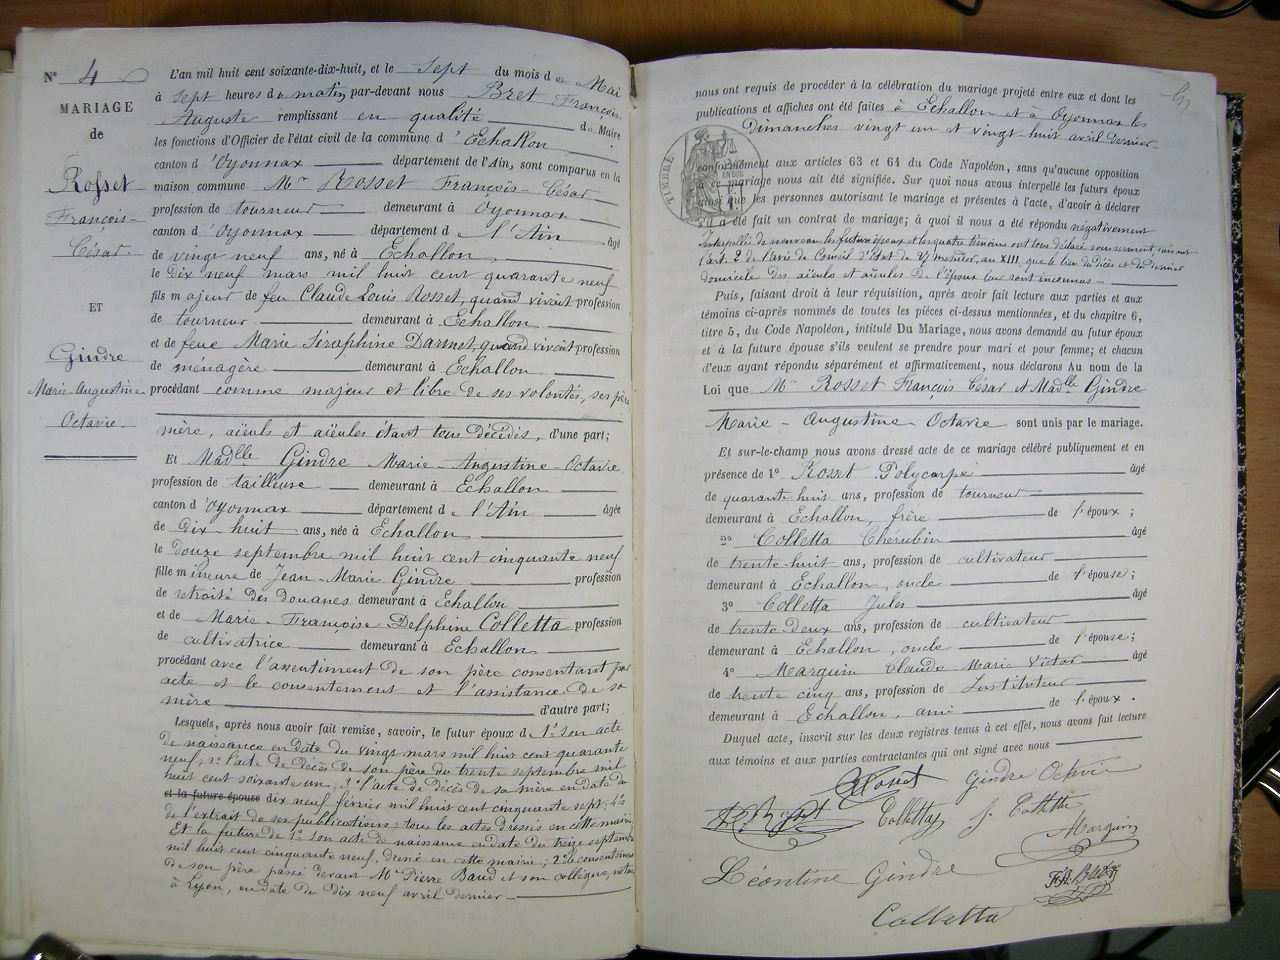 N° 4
MARIAGE
de
Rosset
François-
César
ET
Gindre
Marie-Augustine
Octavie
L'an mil huit cent soixante-dix-huit, et le sept du mois de Mai
à sept heures du matin, par-devant nous Bret François-
Auguste remplissant en qualité de Maire
les fonctions d'Officier de l'état civil de la commune d'Echallon
canton d'Oyonnax département de l'Ain, sont comparus en la
maison commune Mr Rosset François-César
profession de tourneur demeurant à Oyonnax
canton d'Oyonnax département d l'Ain âgé
de vingt neuf ans, né à Echallon,
le dix neuf mars mil huit cent quarante neuf
fils majeur de feu Claude Louis Rosset, quand vivait profession
de tourneur demeurant à Echallon
et de feue Marie Séraphine Darmet, quand vivait profession
de ménagère demeurant à Echallon
procédant comme majeur et libre de ses volontés, ses père
mère, aïeuls et aïeules étant tous décédés, d'une part;
Et Madlle Gindre Marie-Augustine-Octavie
profession de tailleuse demeurant à Echallon
canton d'Oyonnax département d l'Ain âgée
de Dix-huit ans, née à Echallon
le douze septembre mil huit cent cinquante neuf
fille mineure de Jean-Marie Gindre profession
de retraité des Douanes demeurant à Echallon
et de Marie-Françoise Delphine Colletta profession
de cultivatrice demeurant à Echallon
procédant avec l'assentiment de son père consentant par
acte et le consentement et l'assistance de sa
mère d'autre part;
Lesquels, après nous avoir fait remise, savoir, le futur époux d 1° son acte
de naissance en date du vingt mars mil huit cent quarante
neuf, 2° l'acte de décès de son père du trente septembre mil
huit cent soixante un; 3° l'acte de décès de sa mère en date du
et la future épouse dix neuf février mil huit cent cinquante sept; 4°
de l'extrait de ses publications; tous les actes dressés en cette mairie
Et la future de 1° son acte de naissance en date du treize septembre
mil huit cent cinquante neuf, dressé en cette mairie; 2° de consentement
de son père passé devant Me Pierre Baud et son collègue, notaires
à Lyon, en date du dix neuf avril dernier
nous ont requis de procéder à la célébration du mariage projeté entre eux et dont les
publications et affiches ont été faites à Echallon et à Oyonnax les
Dimanches vingt un et vingt huit avril dernier
TIMBRE
conformément aux articles 63 et 64 du Code Napoléon, sans qu'aucune opposition
à ce mariage nous ait été signifiée. Sur quoi nous avons interpellé les futurs époux
ainsi que les personnes autorisant le mariage et présentes à l'acte, d'avoir à déclarer
s'il a été fait un contrat de mariage; à quoi il nous a été répondu négativement
Interpellés de nouveau les futurs époux et les quatre témoins ont tous déclaré sous serment suivant
l'art. 2 de l'avis du Conseil d'Etat du 4 messidor, an XIII, que le lieu du décès et du dernier
domicile des aïeuls et aïeules de l'époux leur sont inconnus
Puis, faisant droit à leur réquisition, après avoir fait lecture aux parties et aux
témoins ci-après nommés de toutes les pièces ci-dessus mentionnées, et du chapitre 6,
titre 5, du Code Napoléon, intitulé Du Mariage, nous avons demandé au futur époux
et à la future épouse s'ils veulent se prendre pour mari et pour femme; et chacun
d'eux ayant répondu séparément et affirmativement, nous déclarons Au nom de la
Loi que Mr Rosset François César et Madlle Gindre
Marie-Augustine-Octavie sont unis par le mariage.
Et sur-le-champ nous avons dressé acte de ce mariage célébré publiquement et en
présence de 1° Rosset Polycarpe âgé
de quarante huit ans, profession de tourneur
demeurant à Echallon, frère de l'époux;
2° Colletta Cherubin âgé
de trente-huit ans, profession de cultivateur
demeurant à Echallon, oncle de l'épouse;
3° Colletta Jules âgé
de trente deux ans, profession de cultivateur
demeurant à Echallon, oncle de l'épouse;
4° Marquin Claude Marie Victor âgé
de trente cinq ans, profession de Instituteur
demeurant à Echallon, ami de l'époux.
Duquel acte, inscrit sur les deux registres tenus à cet effet, nous avons fait lecture
aux témoins et aux parties contractantes qui ont signé avec nous
Rosset Gindre Octavie
Rosset Colletta J. Colletta
Marquin
Léontine Gindre
Colletta